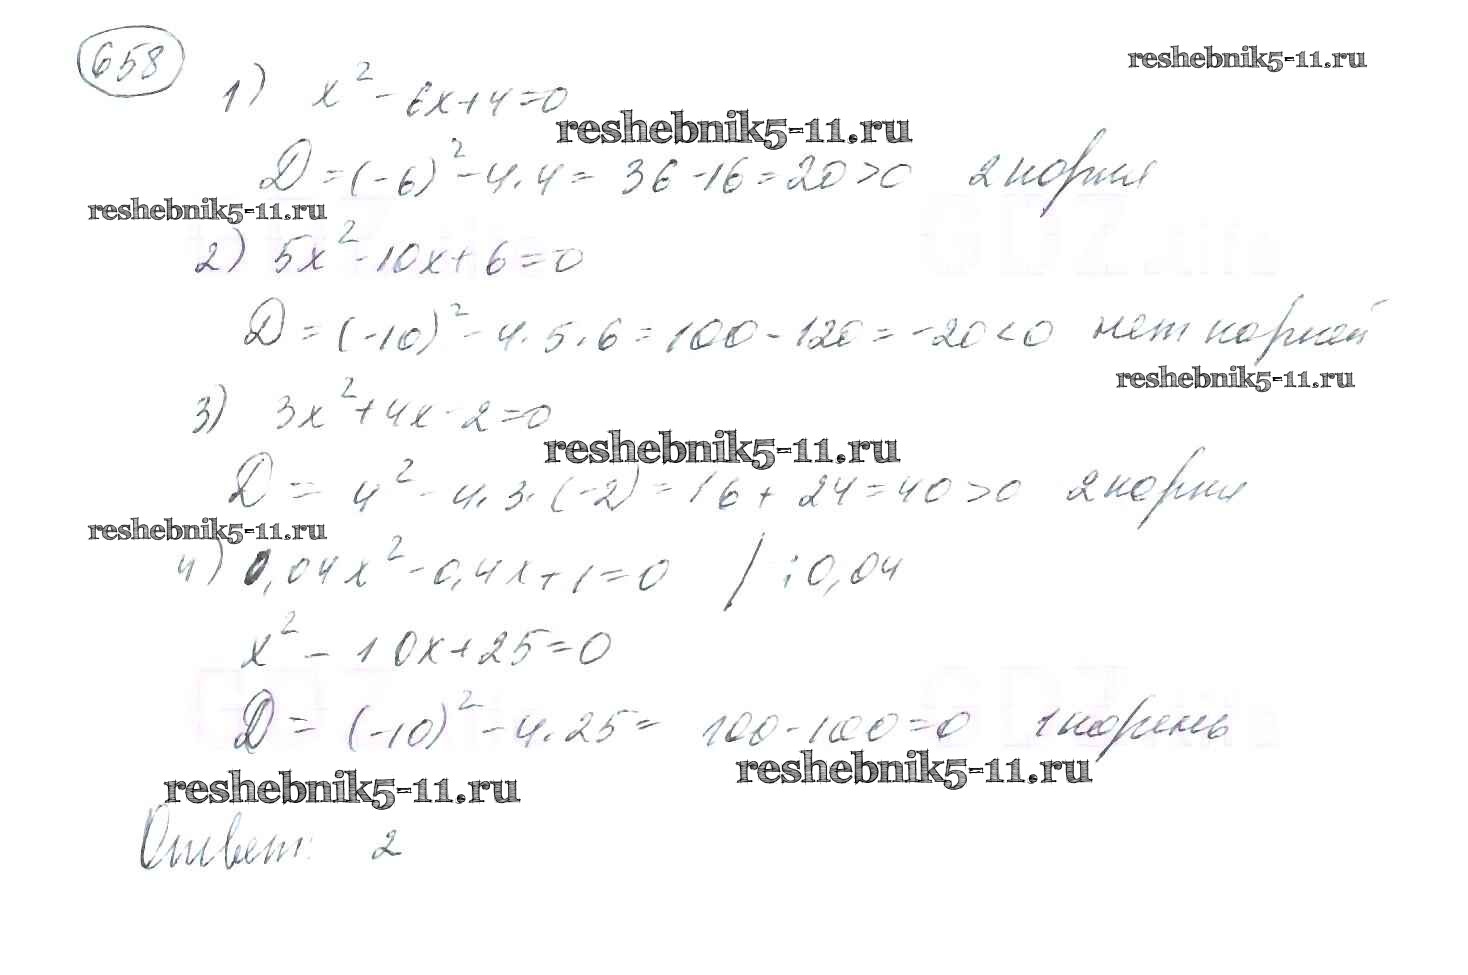 658
reshebnik5-11.ru
1) x² - 6x + 4 = 0
reshebnik5-11.ru
D = (-6)² - 4·4 = 36 - 16 = 20 > 0 2 корня
reshebnik5-11.ru
2) 5x² - 10x + 6 = 0
D = (-10)² - 4·5·6 = 100 - 120 = -20 < 0 нет корней
reshebnik5-11.ru
3) 3x² + 4x - 2 = 0
reshebnik5-11.ru
D = 4² - 4·3·(-2) = 16 + 24 = 40 > 0 2 корня
reshebnik5-11.ru
4) 0,04x² - 0,4x + 1 = 0 / : 0,04
x² - 10x + 25 = 0
D = (-10)² - 4·25 = 100 - 100 = 0 1 корень
reshebnik5-11.ru
reshebnik5-11.ru
Ответ: 2